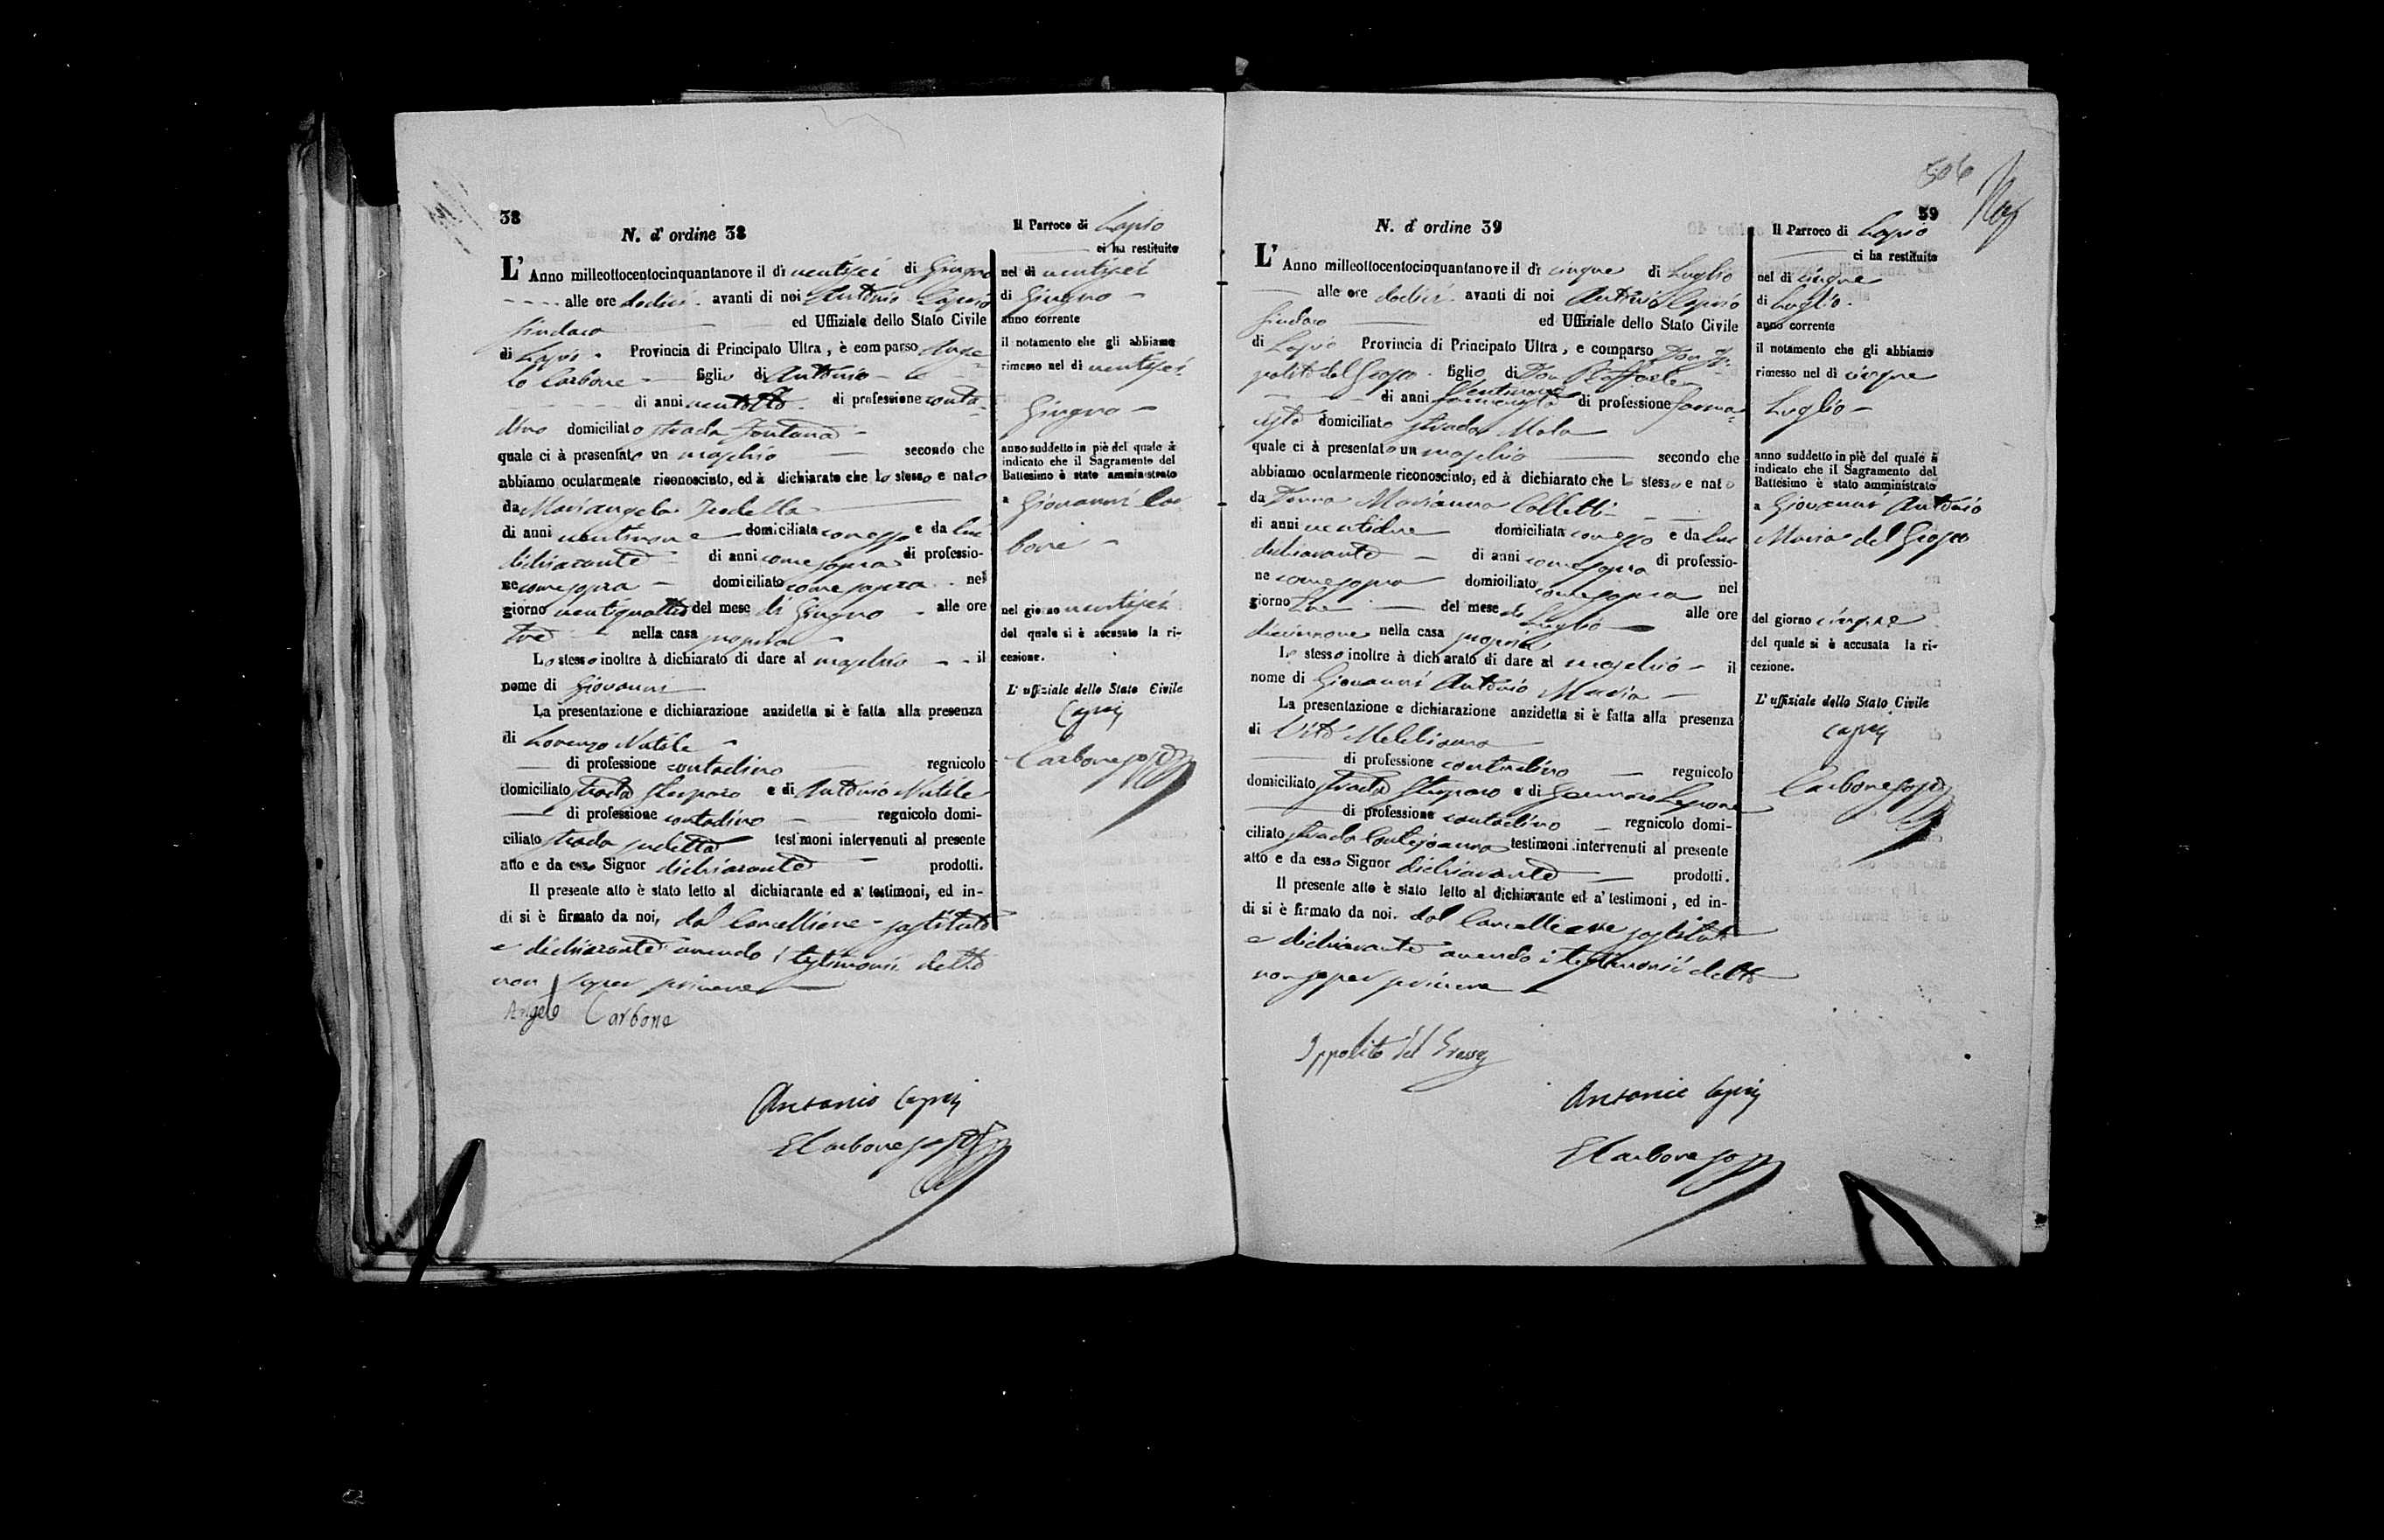 38
N. d' ordine 38
L' Anno milleottocentocinquantanove il dì ventisei di Giugno
alle ore dodici avanti di noi Antonio Caprio
Sindaco ed Uffiziale dello Stato Civile
di Lapio Provincia di Principato Ultra, è comparso Ange-
lo Carbone figlio di Antonio
di anni ventotto di professione conta-
dino domiciliato strada Fontana
quale ci à presentato un maschio secondo che
abbiamo ocularmente riconosciuto, ed à dichiarato che lo stesso e nato
da Mariangela
di anni ventinove domiciliata con esso e da lui
dichiarante di anni come sopra di professio-
ne come sopra domiciliato come sopra nel
giorno ventiquattro del mese di Giugno alle ore
tre nella casa propria
Lo stesso inoltre à dichiarato di dare al maschio il
nome di Giovanni
La presentazione e dichiarazione anzidetta si è fatta alla presenza
di Lorenzo Natile
di professione contadino regnicolo
domiciliato strada e di Antonio Natile
di professione contadino regnicolo domi-
ciliato strada testimoni intervenuti al presente
atto e da esso Signor dichiarante prodotti.
Il presente atto è stato letto al dichiarante ed a' testimoni, ed in-
di si è firmato da noi, dal Cancelliere sostituto
e dichiarante avendo i testimonii detto
non saper scrivere
Angelo Carbone
Antonio Caprio
E Carbone sost
Il Parroco di Lapio
ci ha restituito
nel dì ventisei
di Giugno
anno corrente
il notamento che gli abbiamo
rimesso nel dì ventisei
Giugno
anno suddetto in piè del quale è
indicato che il Sagramento del
Battesimo è stato amministrato
a Giovanni Car
bone
nel giorno ventisei
del quale si è accusato la ri-
cezione.
L' uffiziale dello Stato Civile
Caprio
Carbone sost
506
39
N. d' ordine 39
L' Anno milleottocentocinquantanove il dì cinque di Luglio
alle ore dodici avanti di noi Antonio Caprio
Sindaco ed Uffiziale dello Stato Civile
di Lapio Provincia di Principato Ultra, e comparso Don Ip-
polito del Grosso figlio di Don Raffaele
di anni ventinove di professione farma-
cista domiciliato strada Mola
quale ci à presentato un maschio secondo che
abbiamo ocularmente riconosciuto, ed à dichiarato che lo stesso e nato
da Donna Marianna Colletti
di anni ventidue domiciliata con esso e da lui
dichiarante di anni come sopra di professio-
ne come sopra domiciliato come sopra nel
giorno due del mese di Luglio alle ore
diciannove nella casa propria
Lo stesso inoltre à dichiarato di dare al maschio il
nome di Giovanni Antonio Maria
La presentazione e dichiarazione anzidetta si è fatta alla presenza
di Vito Melchionna
di professione contadino regnicolo
domiciliato strada e di Gennaro Lepore
di professione contadino regnicolo domi-
ciliato strada testimoni intervenuti al presente
atto e da esso Signor dichiarante prodotti.
Il presente atto è stato letto al dichiarante ed a' testimoni, ed in-
di si è firmato da noi, dal Cancelliere sostituto
e dichiarante avendo i testimonii detto
non saper scrivere
Ippolito del Grosso
Antonio Caprio
E Carbone sost
Il Parroco di Lapio
ci ha restituito
nel dì cinque
di Luglio
anno corrente
il notamento che gli abbiamo
rimesso nel dì cinque
Luglio
anno suddetto in piè del quale è
indicato che il Sagramento del
Battesimo è stato amministrato
a Giovanni Antonio
Maria del Grosso
del giorno cinque
del quale si è accusata la ri-
cezione.
L' uffiziale dello Stato Civile
Caprio
Carbone sost